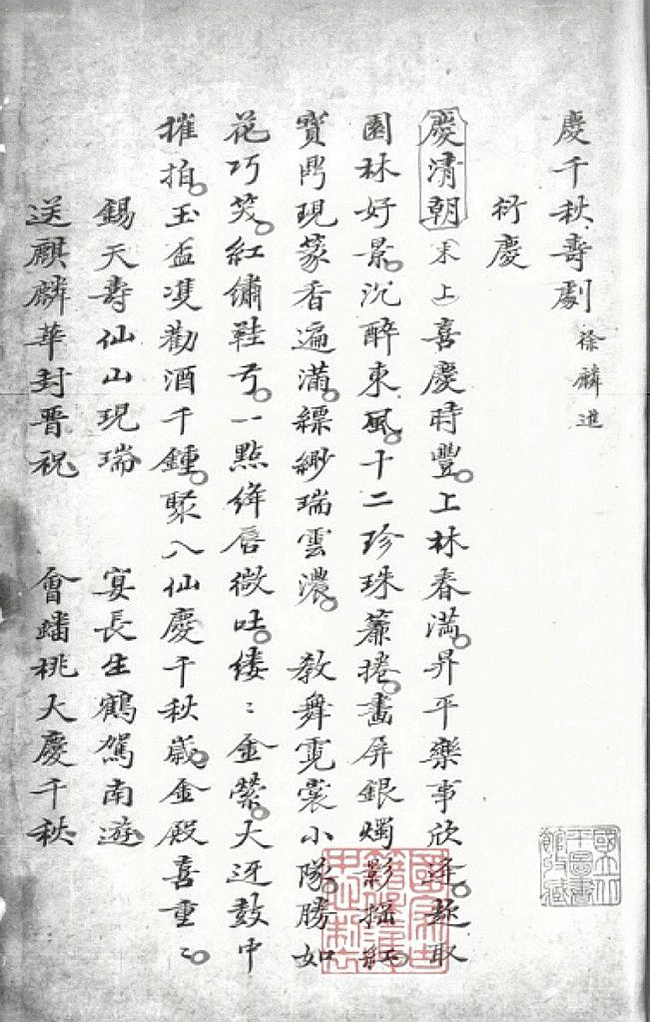 慶千秋壽劇 徐麟進
衍慶
慶清朝（末上）喜慶時豐。上林春滿。昇平樂事欣逢。趂取
園林好景。沉醉東風。十二珍珠簾捲。畵屏銀燭影揺紅。
寳鼎現篆香遍滿。縹緲瑞雲濃。 教舞霓裳小隊。勝如
花巧笑。紅繡鞋弓。一點絳唇微吐。縷〻金縈。大迓鼓中
摧拍。玉盃雙勸酒千鍾。聚八仙慶千秋歲。金殿喜重〻。
錫天壽仙山現瑞 宴長生鶴駕南遊
送麒麟華封晋祝 會蟠桃大慶千秋
國立北平圖書館收藏